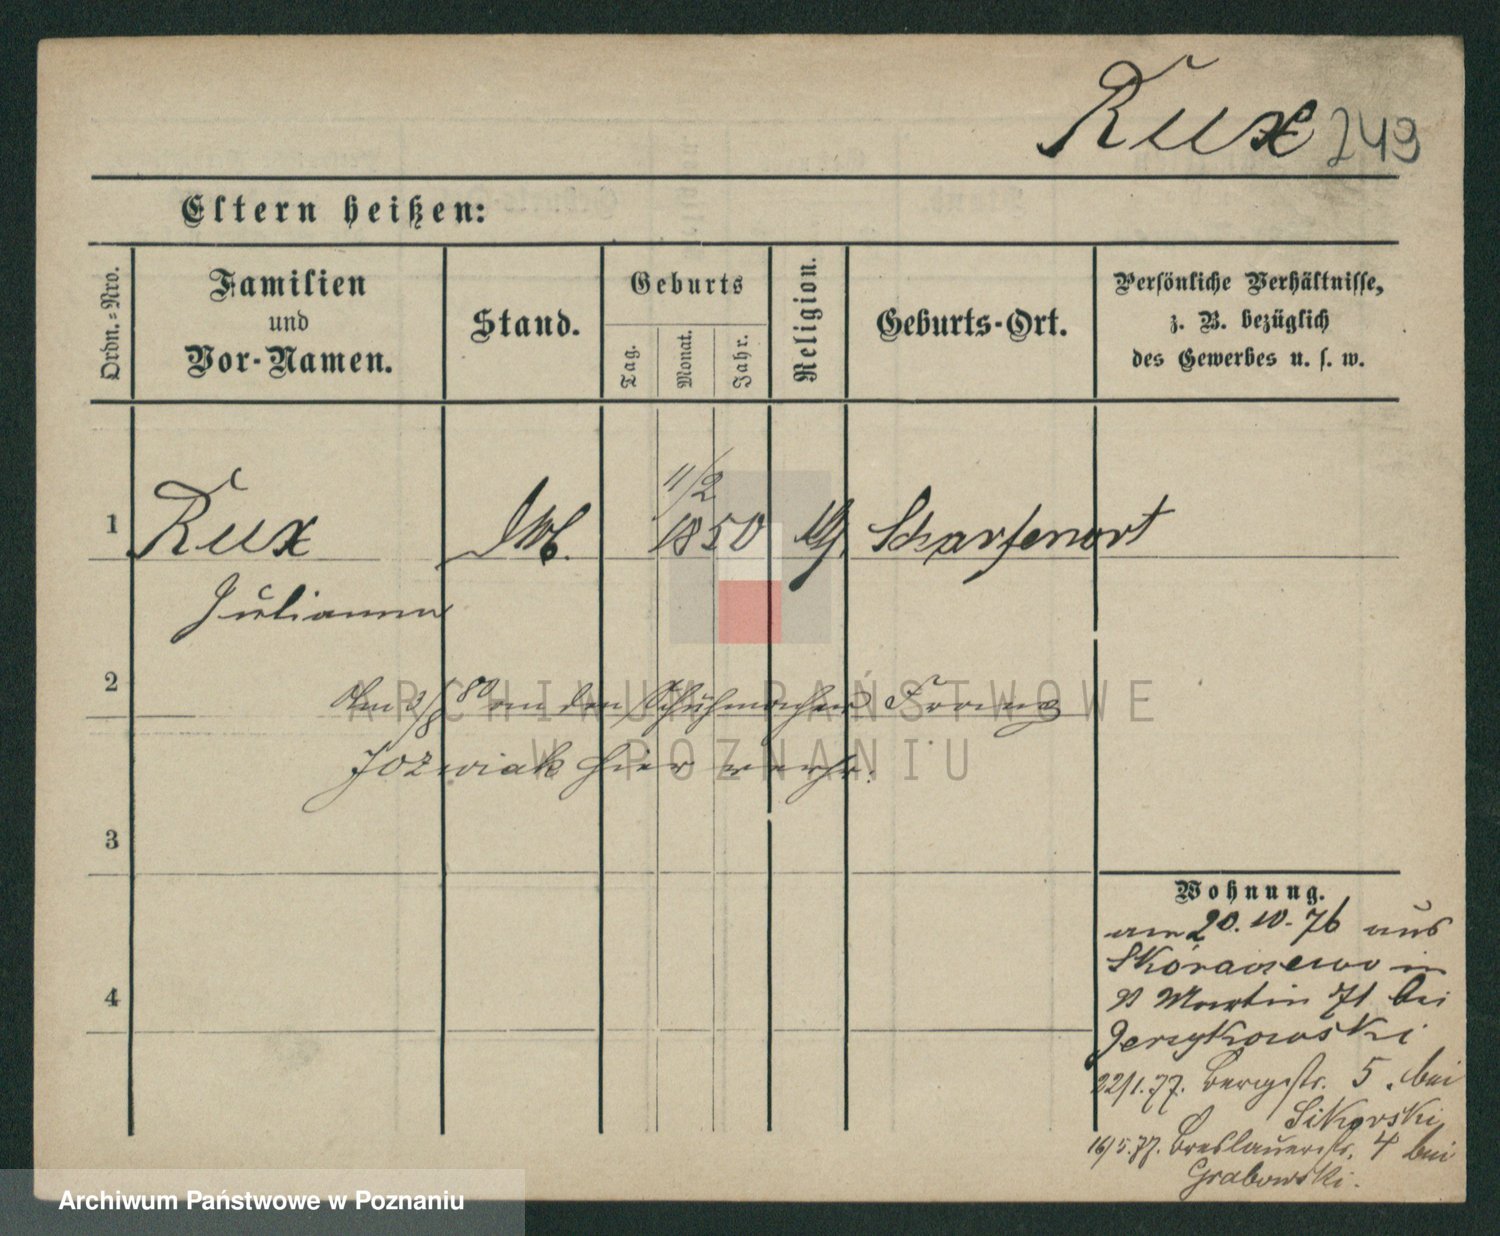 Rux 249
Eltern heißen:
Ordn.=Nro.
Familien
und
Vor-Namen.
Stand.
Geburts
Tag.
Monat.
Jahr.
Religion.
Geburts-Ort.
Persönliche Verhältnisse,
z. B. bezüglich
des Gewerbes u. s. w.
11/2
1 Rux 1850 Scharfenort
Julianna
2
Am 3/8 80 an den Schuhmacher Franz
Jozwiak hier verh.
3
4
Wohnung.
am 20.10.76 aus
in
St Martin 71 bei
Jerzykowski
22/1.77. Bergstr. 5. bei
Sikorski
16/5.77. Breslauerstr. 4 bei
Grabowski.
ARCHIWUM PAŃSTWOWE
W POZNANIU
Archiwum Państwowe w Poznaniu